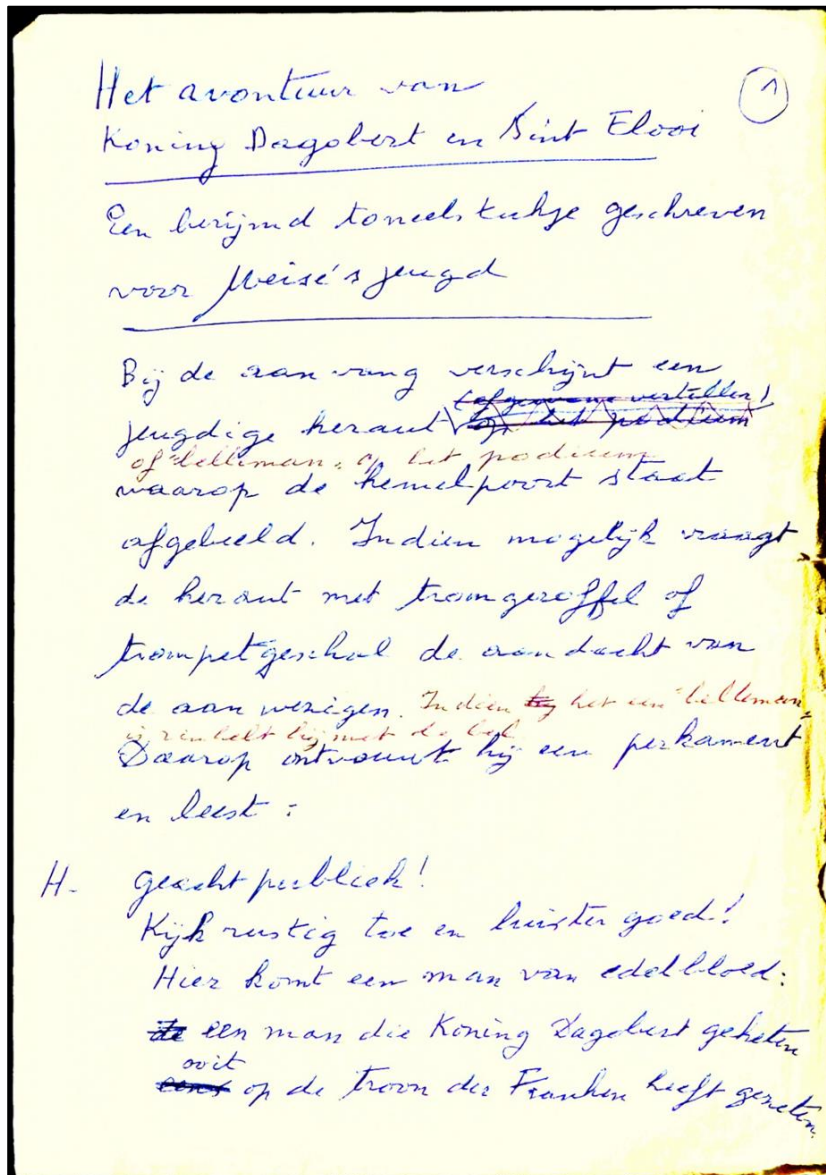 Het avontuur van
1
Koning Dagobert en Sint Elooi
Een berijmd toneelstukje geschreven
voor Meise's jeugd
Bij de aanvang verschijnt een
(of gewone verteller)
jeugdige heraut op het podium
of "belleman" op het podium
waarop de hemelpoort staat
afgebeeld. Indien mogelijk vraagt
de heraut met tromgeroffel of
trompetgeschal de aandacht van
de aanwezigen. Indien hij het een "belleman"
is rinkelt hij met de bel
Daarop ontvouwt hij een perkament
en leest :
H. - geacht publiek!
Kijk rustig toe en luister goed!
Hier komt een man van edelbloed:
De een man die Koning Dagobert geheten
ooit
eens op de troon der Franken heeft gezeten.